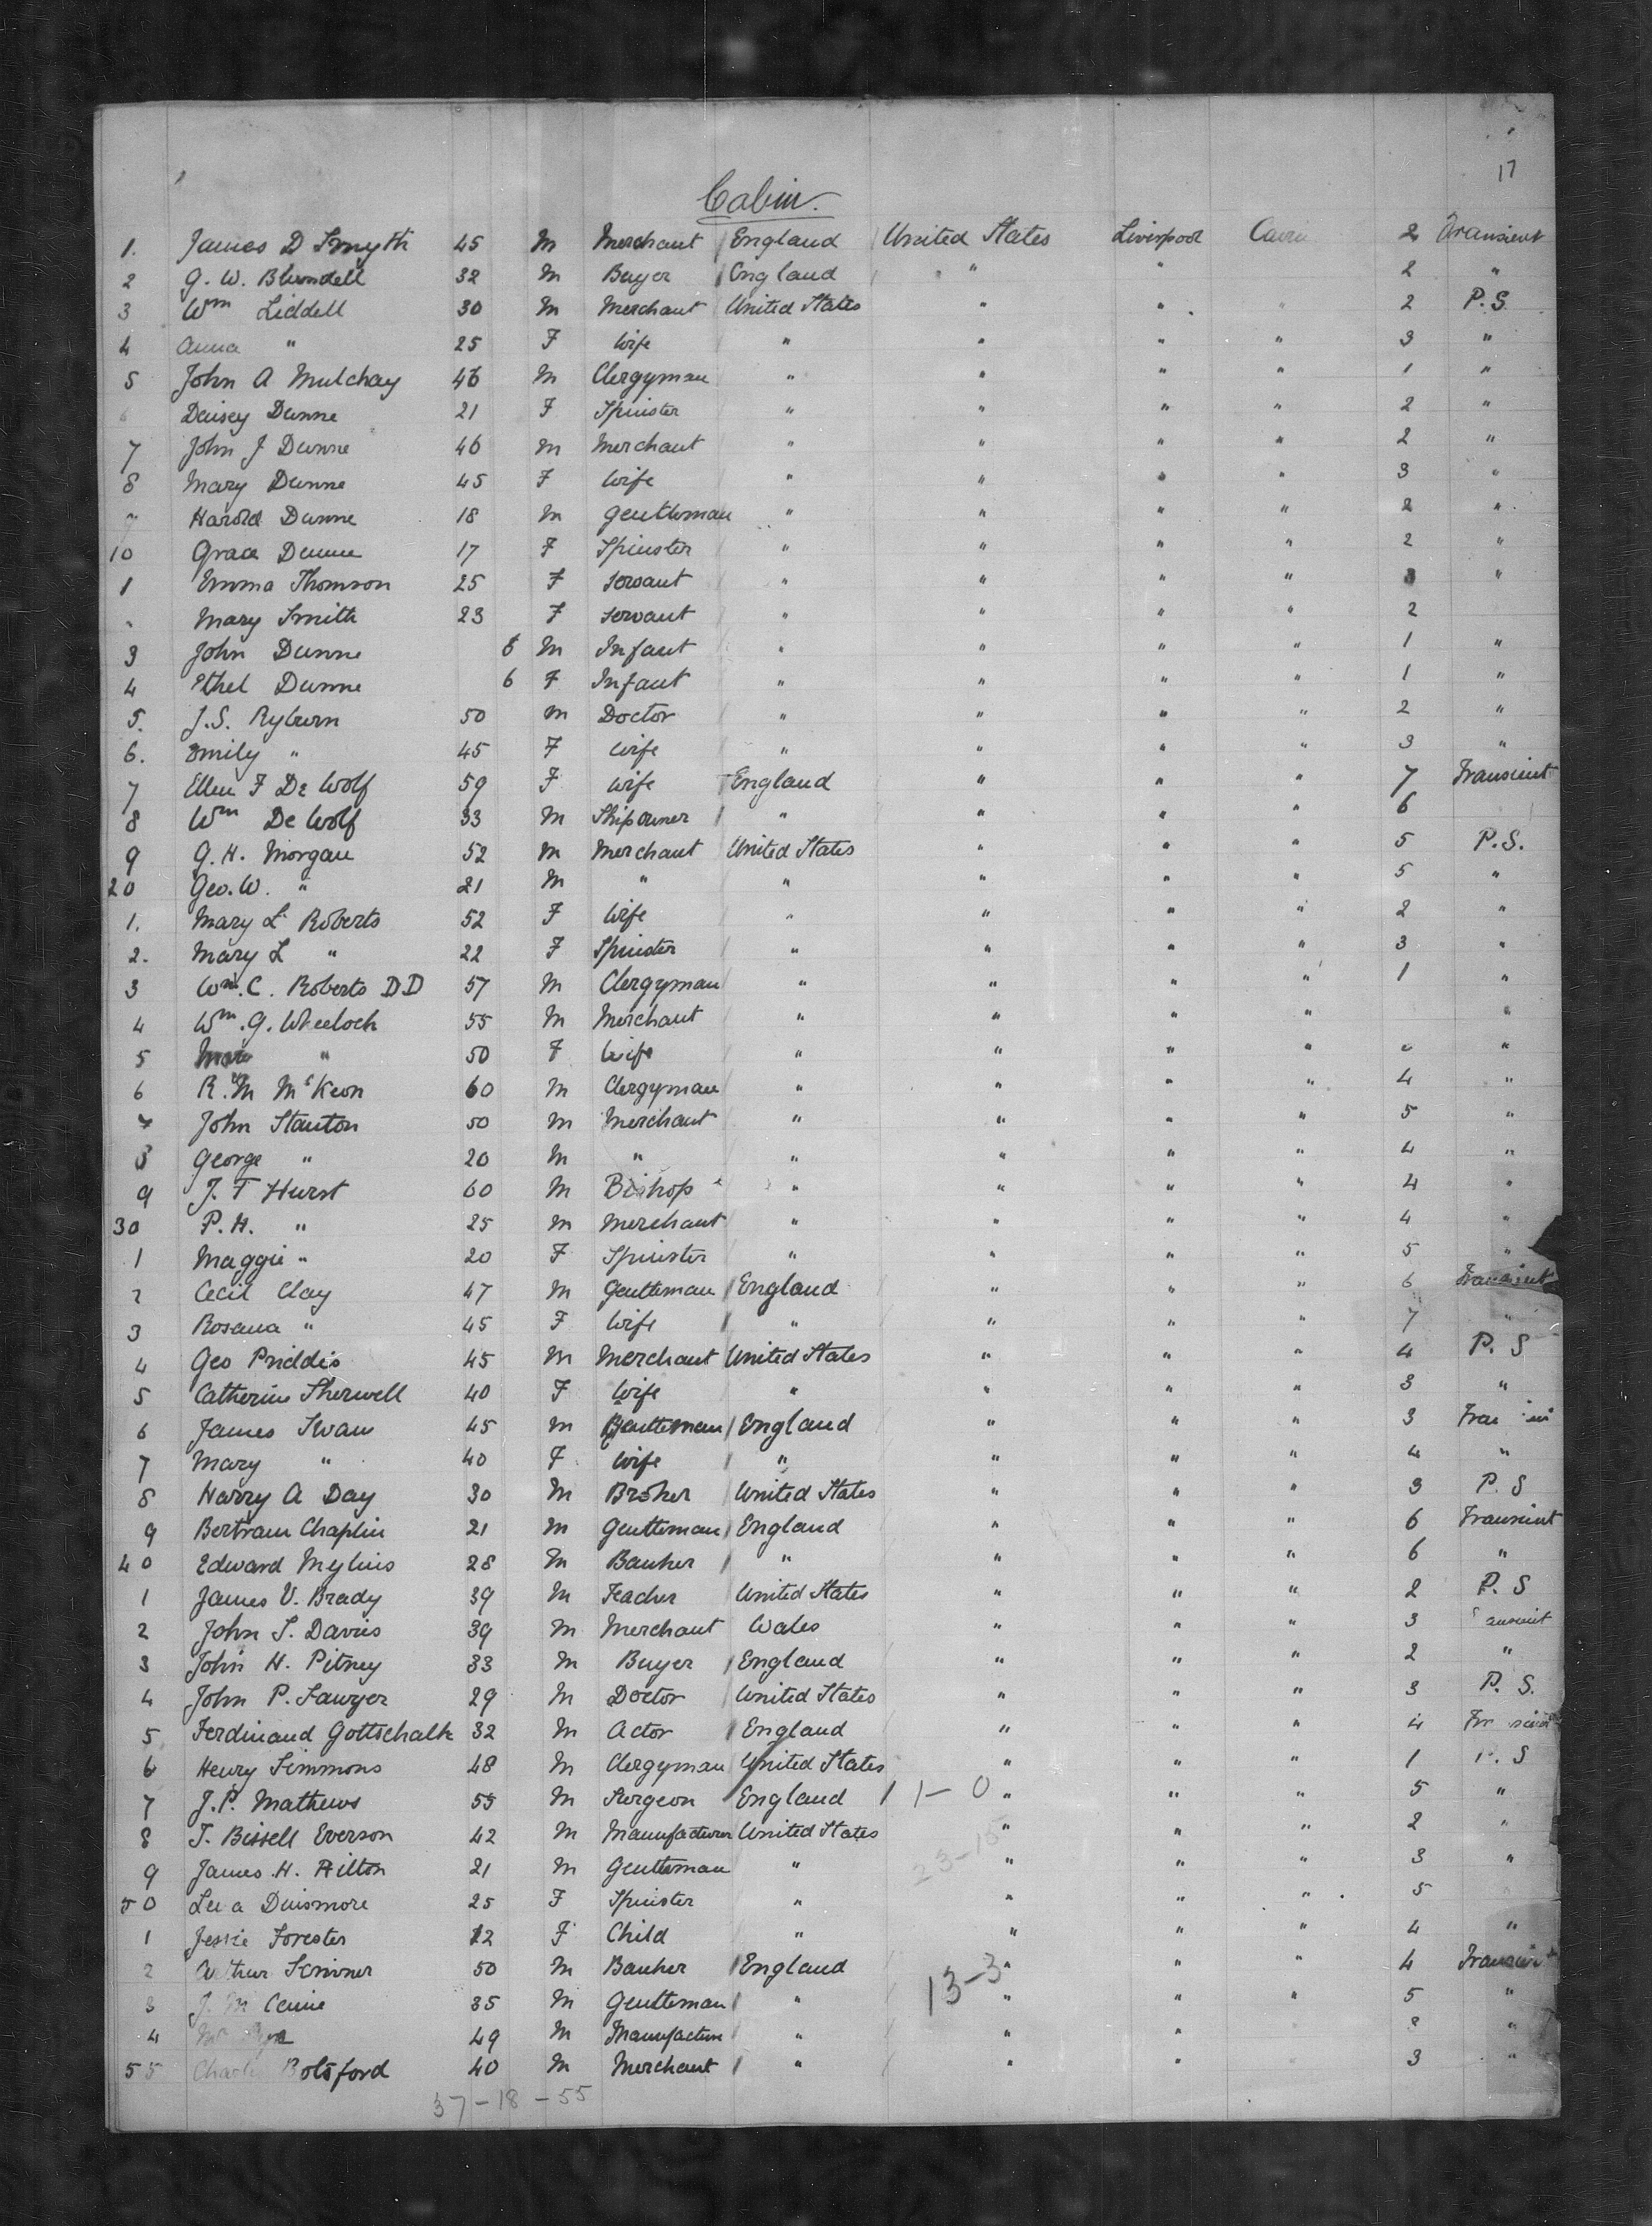 17
Cabin.
1. James D Smyth 45 M Merchant England United States Liverpool Cabin 2 Transient
2 G. W. Blundell 32 M Buyer England " " 2 "
3 Wm Liddell 30 M Merchant United States " " " 2 P.S.
4 Anna " 25 F Wife " " " " 3 "
5 John A Mulchay 46 M Clergyman " " " " 1 "
6 Daisey Dunne 21 F Spinster " " " " 2 "
7 John J Dunne 46 M Merchant " " " " 2 "
8 Mary Dunne 45 F Wife " " " " 3 "
9 Harold Dunne 18 M Gentleman " " " " 2 "
10 Grace Dunne 17 F Spinster " " " " 2 "
1 Emma Thomson 25 F Servant " " " " 3 "
Mary Smith 23 F Servant " " " " 2
3 John Dunne 6 M Infant " " " " 1 "
4 Ethel Dunne 6 F Infant " " " " 1 "
5. J.S. Ryburn 50 M Doctor " " " " 2 "
6. Emily " 45 F Wife " " " " 3 "
7 Ellen F De Wolf 59 F Wife England " " " 7 Transient
8 Wm De Wolf 33 M Shipowner " " " " 6
9 G. H. Morgan 52 M Merchant United States " " " 5 P.S.
20 Geo. W. " 21 M " " " " " 5 "
1. Mary L Roberts 52 F Wife " " " " 2 "
2. Mary L " 22 F Spinster " " " " 3 "
3 Wm. C. Roberts DD 57 M Clergyman " " " " 1 "
4 Wm. G. Wheelock 55 M Merchant " " " " "
5 " 50 F Wife " " " " " "
6 R. M McKeon 60 M Clergyman " " " " 4 "
7 John Stanton 50 M Merchant " " " " 5 "
8 George " 20 M " " " " " 4 "
9 J. F Hurst 60 M Bishop " " " " 4 "
30 P. H. " 25 M Merchant " " " " 4 "
1 Maggie " 20 F Spinster " " " " 5 "
2 Cecil Clay 47 M Gentleman England " " " 6 Transient
3 Rosana " 45 F Wife " " " " 7 "
4 Geo Priddis 45 M Merchant United States " " " 4 P. S
5 Catherine Sherwell 40 F Wife " " " " 3 "
6 James Swan 45 M Gentleman England " " " 3
7 Mary " 40 F Wife " " " " 4 "
8 Harry A Day 30 M Broker United States " " " 3 P. S
9 Bertram Chaplin 21 M Gentleman England " " " 6 Transient
40 Edward Mylius 28 M Banker " " " " 6 "
1 James V. Brady 39 M Teacher United States " " " 2 P. S
2 John S. Davies 39 M Merchant Wales " " " 3
3 John H. Pitney 33 M Buyer England " " " 2 "
4 John P. Sawyer 29 M Doctor United States " " " 3 P. S.
5 Ferdinand Gottschalk 32 M Actor England " " " 4
6 Henry Simmons 48 M Clergyman United States " " " 1 P. S
7 J. P. Mathews 55 M Surgeon England 1-0 " " " 5 "
8 T. Bissell Everson 42 M Manufacturer United States " " " 2 "
9 James H. Hilton 21 M Gentleman " 23-18 " " " 3 "
50 Dinsmore 25 F Spinster " " " " 5
1 Jessie Forester 12 F Child " " " " 4 "
2 Arthur Scrivner 50 M Banker England " " " 4 Transient
3 J. 35 M Gentleman " 13-3 " " " 5 "
4 49 M Manufacture " " " "
55 Botsford 40 M Merchant " " " 3 "
37-18-55